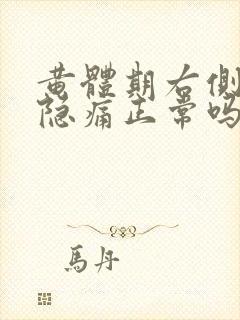 黄體期右側
隐痛正常吗
馬丹